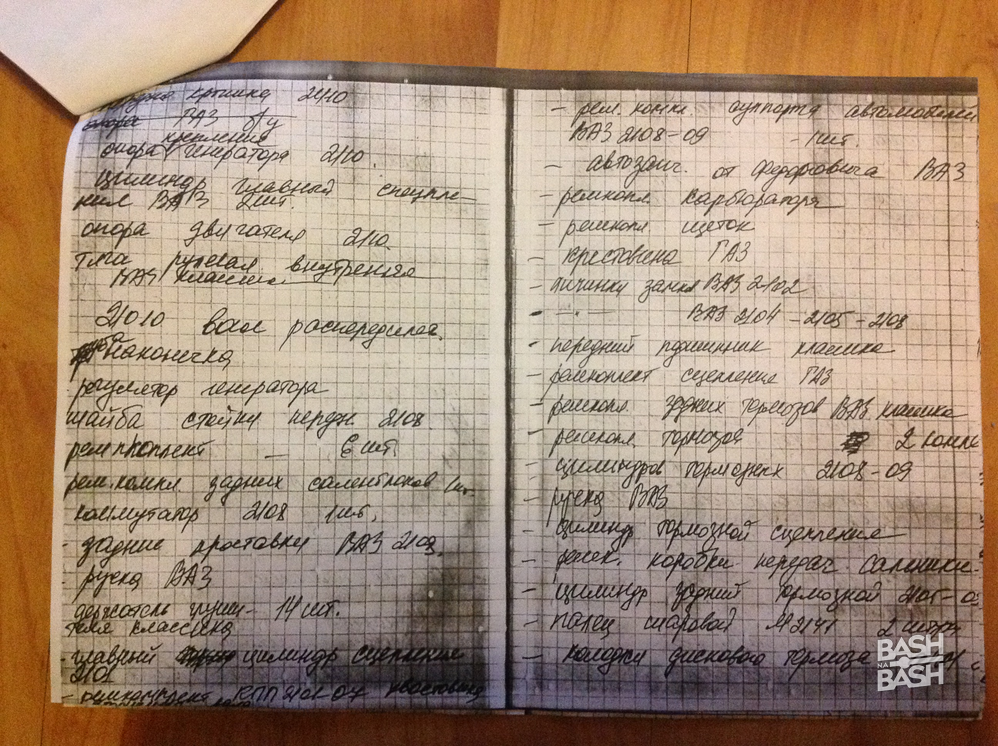 крышка 2110
опора ВАЗ б/у
крепления
опора генератора 2110.
цилиндр главный сцепле-
ния ВАЗ 2шт.
опора двигателя 2110.
тяга рулевая внутренняя
ВАЗ классика
21010 вал распределит.
наконечка
регулятор генератора
шайба стойки передн 2108
ремкомплект — 6 шт.
рем. компл. задних салентблоков 1шт.
коммутатор 2108 1шт.
- задние проставки ВАЗ 2109.
- ручка ВАЗ
держатель - 14 шт.
классика
- главный цилиндр сцепления
2101
- ремкомплект КПП 2101-07
- рем. компл. суппорта автомобиля
ВАЗ 2108-09 - 1шт.
- автозапч. от Федоровича ВАЗ
- ремкопл карбюратора
- ремкопл щеток
- крестовина ГАЗ
- личинки замка ВАЗ 2102
- —··— ВАЗ 2104 - 2105 - 2108
- передний пдшипник класика
- ремкоплект сцепления ГАЗ
- ремкопл. задних тормозов ВАЗ класика
- ремкопл тормозов 2 компл
- цилиндров тормозных 2108-09
- ручка ВАЗ
- цилиндр тормозной сцепления
- ремк. коробки передач. Сальники
- цилиндр задний тормозной 2105-0
- палец шаровой М2141 2 штуки
- колодки дискового тормоза
BASH
НА
BASH